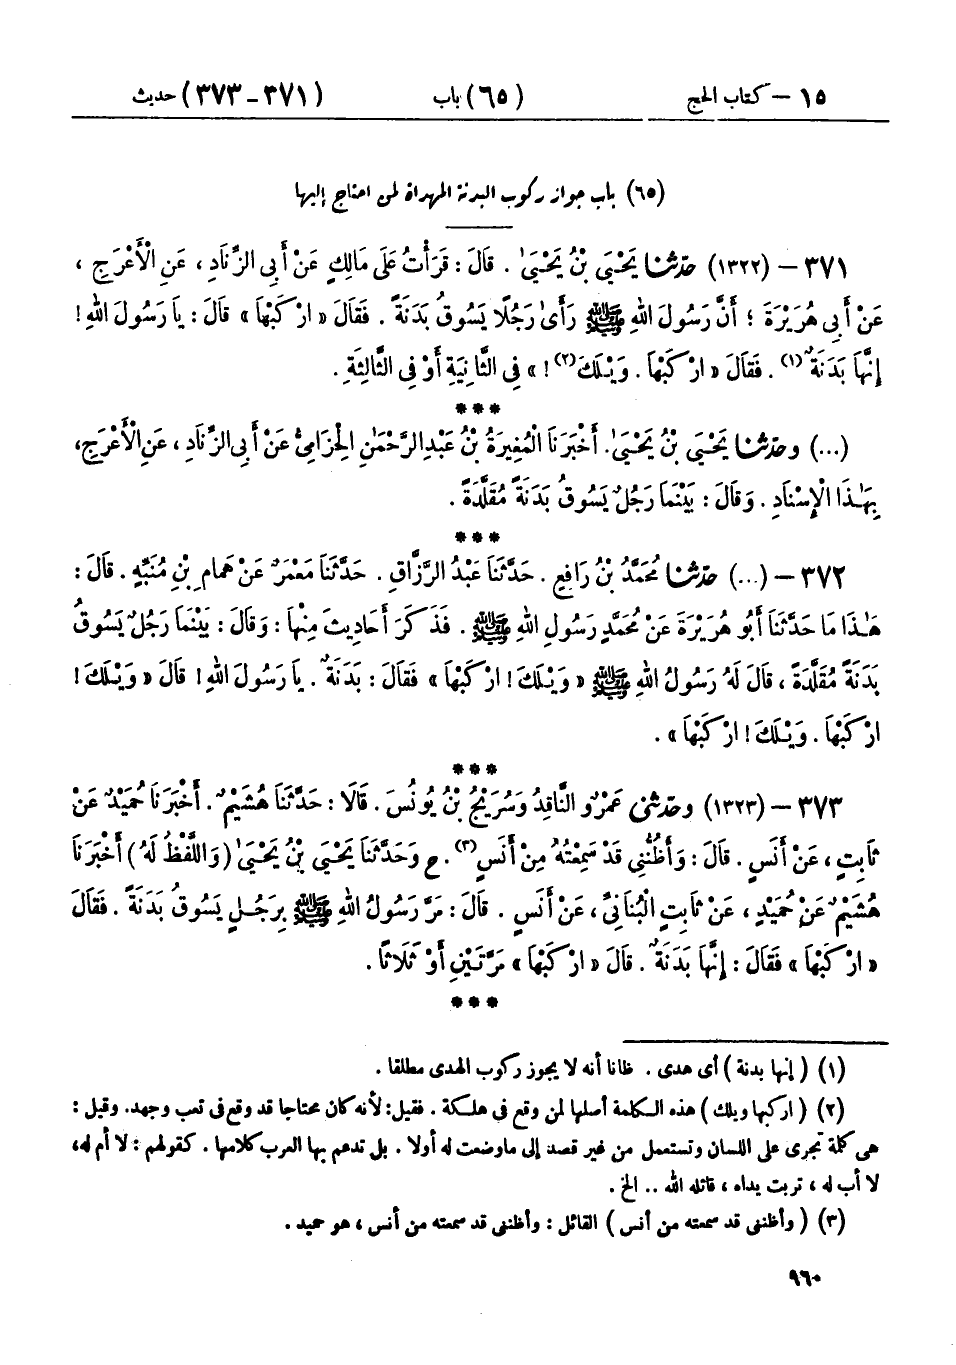 ١٥ – كتاب الحج (٦٥) باب (٣٧١ – ٣٧٣) حديث
(٦٥) باب جواز ركوب البدنة المهداة لمن احتاج إليها
٣٧١ – (١٣٢٢) حَدَّثَنَا يَحْيَىٰ بْنُ يَحْيَىٰ . قَالَ : قَرَأْتُ عَلَىٰ مَالِكٍ عَنْ أَبِي الزِّنَادِ ، عَنِ الْأَعْرَجِ ،
عَنْ أَبِي هُرَيْرَةَ ؛ أَنَّ رَسُولَ اللهِ ﷺ رَأَىٰ رَجُلًا يَسُوقُ بَدَنَةً . فَقَالَ « ارْكَبْهَا » قَالَ : يَا رَسُولَ اللهِ !
إِنَّهَا بَدَنَةٌ (١) . فَقَالَ « ارْكَبْهَا . وَيْلَكَ (٢) ! » فِي الثَّانِيَةِ أَوْ فِي الثَّالِثَةِ .
***
(...) وحَدَّثَنَا يَحْيَىٰ بْنُ يَحْيَىٰ . أَخْبَرَنَا الْمُغِيرَةُ بْنُ عَبْدِ الرَّحْمَٰنِ الْحِزَامِيُّ عَنْ أَبِي الزِّنَادِ ، عَنِ الْأَعْرَجِ ،
بِهَٰذَا الْإِسْنَادِ . وَقَالَ : بَيْنَمَا رَجُلٌ يَسُوقُ بَدَنَةً مُقَلَّدَةً .
***
٣٧٢ – (...) حَدَّثَنَا مُحَمَّدُ بْنُ رَافِعٍ . حَدَّثَنَا عَبْدُ الرَّزَّاقِ . حَدَّثَنَا مَعْمَرٌ عَنْ هَمَّامِ بْنِ مُنَبِّهٍ . قَالَ :
هَٰذَا مَا حَدَّثَنَا أَبُو هُرَيْرَةَ عَنْ مُحَمَّدٍ رَسُولِ اللهِ ﷺ . فَذَكَرَ أَحَادِيثَ مِنْهَا : وَقَالَ : بَيْنَمَا رَجُلٌ يَسُوقُ
بَدَنَةً مُقَلَّدَةً ، قَالَ لَهُ رَسُولُ اللهِ ﷺ « وَيْلَكَ ! ارْكَبْهَا » فَقَالَ : بَدَنَةٌ . يَا رَسُولَ اللهِ ! قَالَ « وَيْلَكَ !
ارْكَبْهَا . وَيْلَكَ ! ارْكَبْهَا » .
***
٣٧٣ – (١٣٢٣) وحَدَّثَنِي عَمْرٌو النَّاقِدُ وَسُرَيْجُ بْنُ يُونُسَ . قَالَا : حَدَّثَنَا هُشَيْمٌ . أَخْبَرَنَا حُمَيْدٌ عَنْ
ثَابِتٍ ، عَنْ أَنَسٍ . قَالَ : وَأَظُنُّنِي قَدْ سَمِعْتُهُ مِنْ أَنَسٍ (٣) . ح وَحَدَّثَنَا يَحْيَىٰ بْنُ يَحْيَىٰ ( وَاللَّفْظُ لَهُ ) أَخْبَرَنَا
هُشَيْمٌ عَنْ حُمَيْدٍ ، عَنْ ثَابِتٍ الْبُنَانِيِّ ، عَنْ أَنَسٍ . قَالَ : مَرَّ رَسُولُ اللهِ ﷺ بِرَجُلٍ يَسُوقُ بَدَنَةً . فَقَالَ
« ارْكَبْهَا » فَقَالَ : إِنَّهَا بَدَنَةٌ . قَالَ « ارْكَبْهَا » مَرَّتَيْنِ أَوْ ثَلَاثًا .
***
(١) ( إنها بدنة ) أى هدى . ظانا أنه لا يجوز ركوب الهدى مطلقا .
(٢) ( اركبها ويلك ) هذه الكلمة أصلها لمن وقع فى هلكة . فقيل : لأنه كان محتاجا قد وقع فى تعب وجهد . وقيل :
هى كلمة تجرى على اللسان وتستعمل من غير قصد إلى ما وضعت له أولا . بل تدعم بها العرب كلامها . كقولهم : لا أم له ،
لا أب له ، تربت يداه ، قاتله الله .. الخ .
(٣) ( وأظننى قد سمعته من أنس ) القائل : وأظننى قد سمعته من أنس ، هو حميد .
٩٦٠